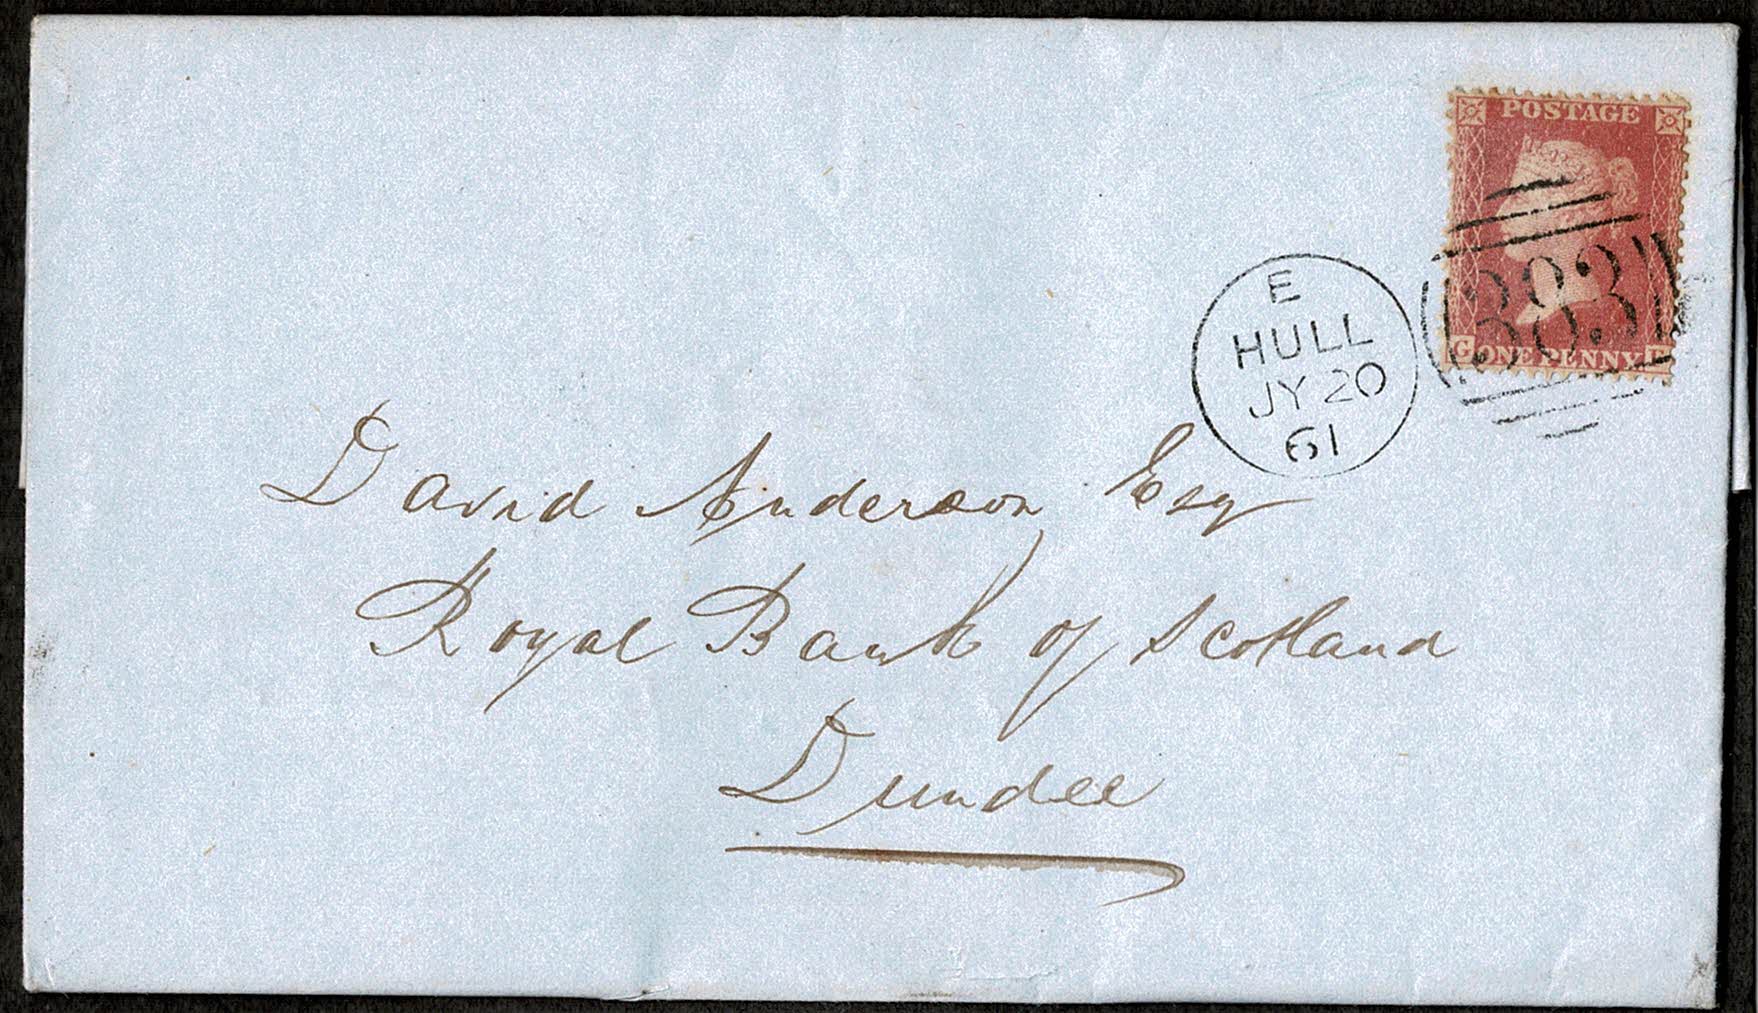 POSTAGE
383
G ONE PENNY
E
HULL
JY 20
61
David Anderson Esq
Royal Bank of Scotland
Dundee